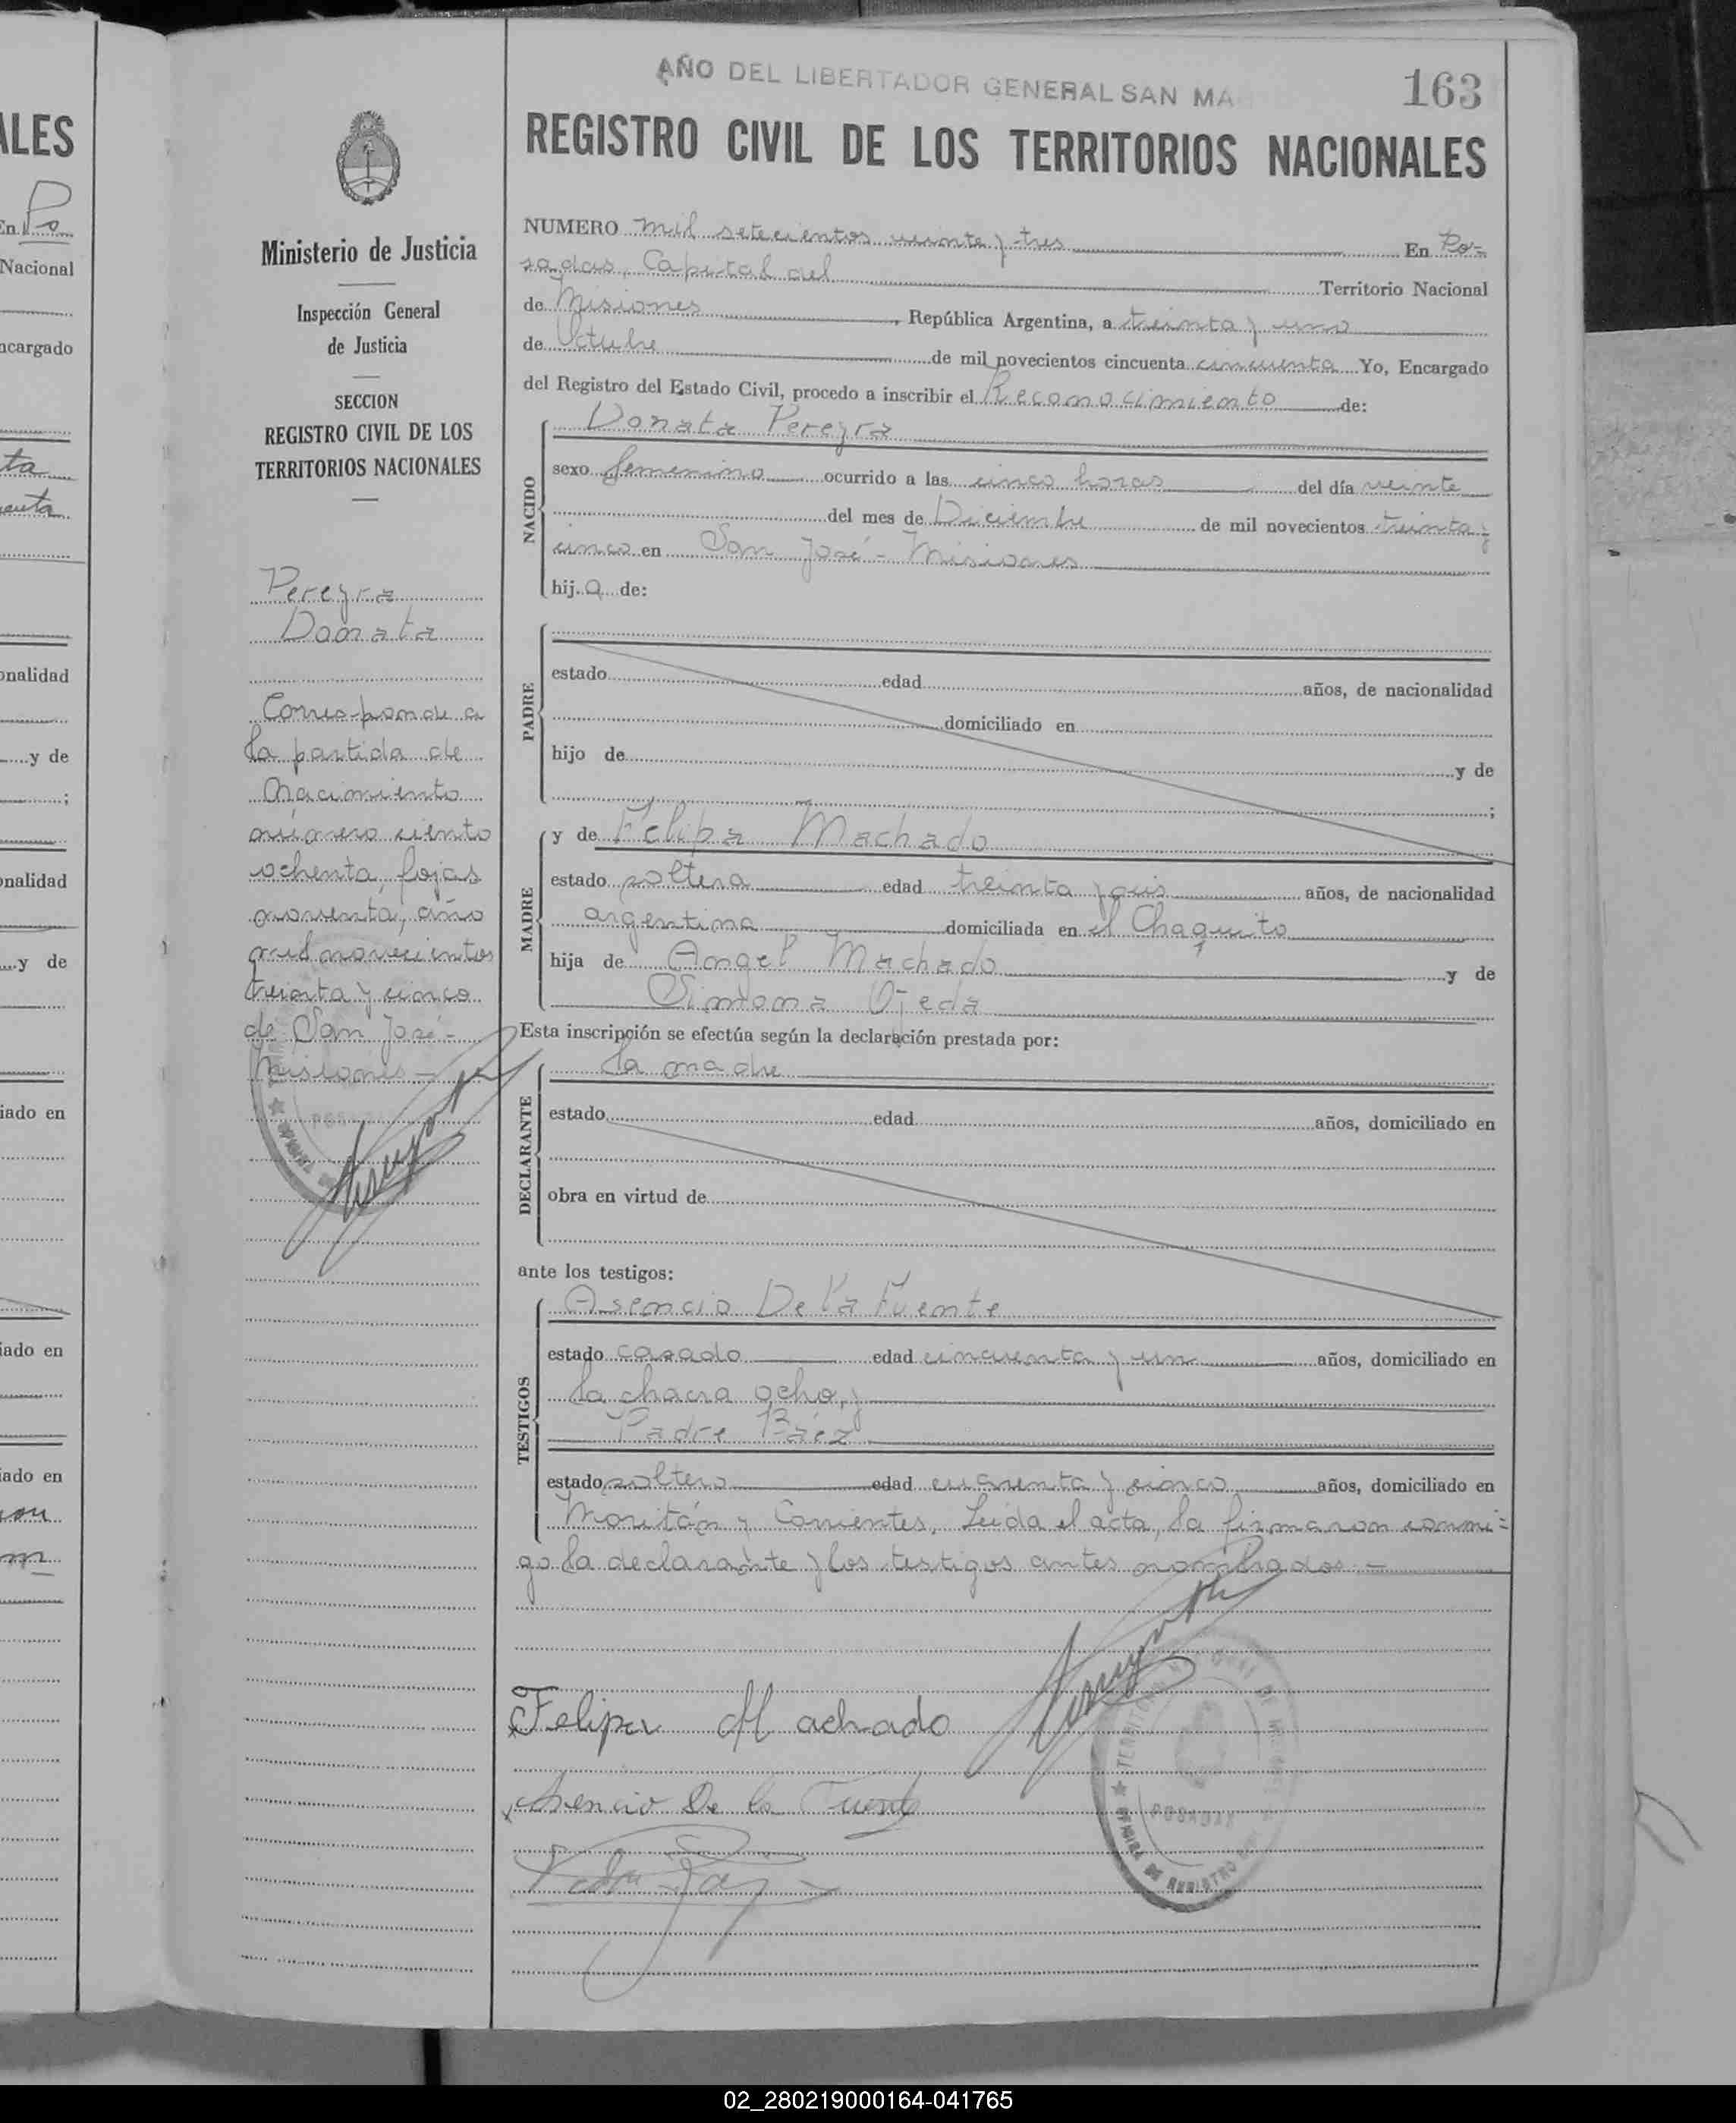 AÑO DEL LIBERTADOR GENERAL SAN MA
163
REGISTRO CIVIL DE LOS TERRITORIOS NACIONALES
Ministerio de Justicia
Inspección General
de Justicia
SECCION
REGISTRO CIVIL DE LOS
TERRITORIOS NACIONALES
Pereyra
Donata
Corresponde a
la partida de
Nacimiento
número ciento
ochenta, fojas
noventa, año
mil novecientos
treinta y cinco
de San José-
Misiones-
NUMERO mil setecientos veinte y tres En Po=
sadas, Capital del Territorio Nacional
de Misiones, República Argentina, a treinta y uno
de Octubre de mil novecientos cincuenta cincuenta Yo, Encargado
del Registro del Estado Civil, procedo a inscribir el Reconocimiento de:
NACIDO
Donata Pereyra
sexo femenino ocurrido a las cinco horas del día veinte
del mes de Diciembre de mil novecientos treinta y
cinco en San José - Misiones
hij a de:
PADRE
estado edad años, de nacionalidad
domiciliado en
hijo de y de
;
MADRE
y de Felipa Machado
estado soltera edad treinta y años, de nacionalidad
argentina domiciliada en el Chaquito
hija de Angel Machado y de
Simona Ojeda
Esta inscripción se efectúa según la declaración prestada por:
DECLARANTE
la madre
estado edad años, domiciliado en
obra en virtud de
ante los testigos:
TESTIGOS
Asencio De la Fuente
estado casado edad cincuenta y un años, domiciliado en
la chacra ocho, y
Padre Báez
estado soltero edad cuarenta y cinco años, domiciliado en
Moritán y Corrientes, Leida el acta, la firmaron conmi=
go la declarante y los testigos antes nombrados.-
Felipa Machado
Asencio De la Fuente
POSADAS
02_280219000164-041765